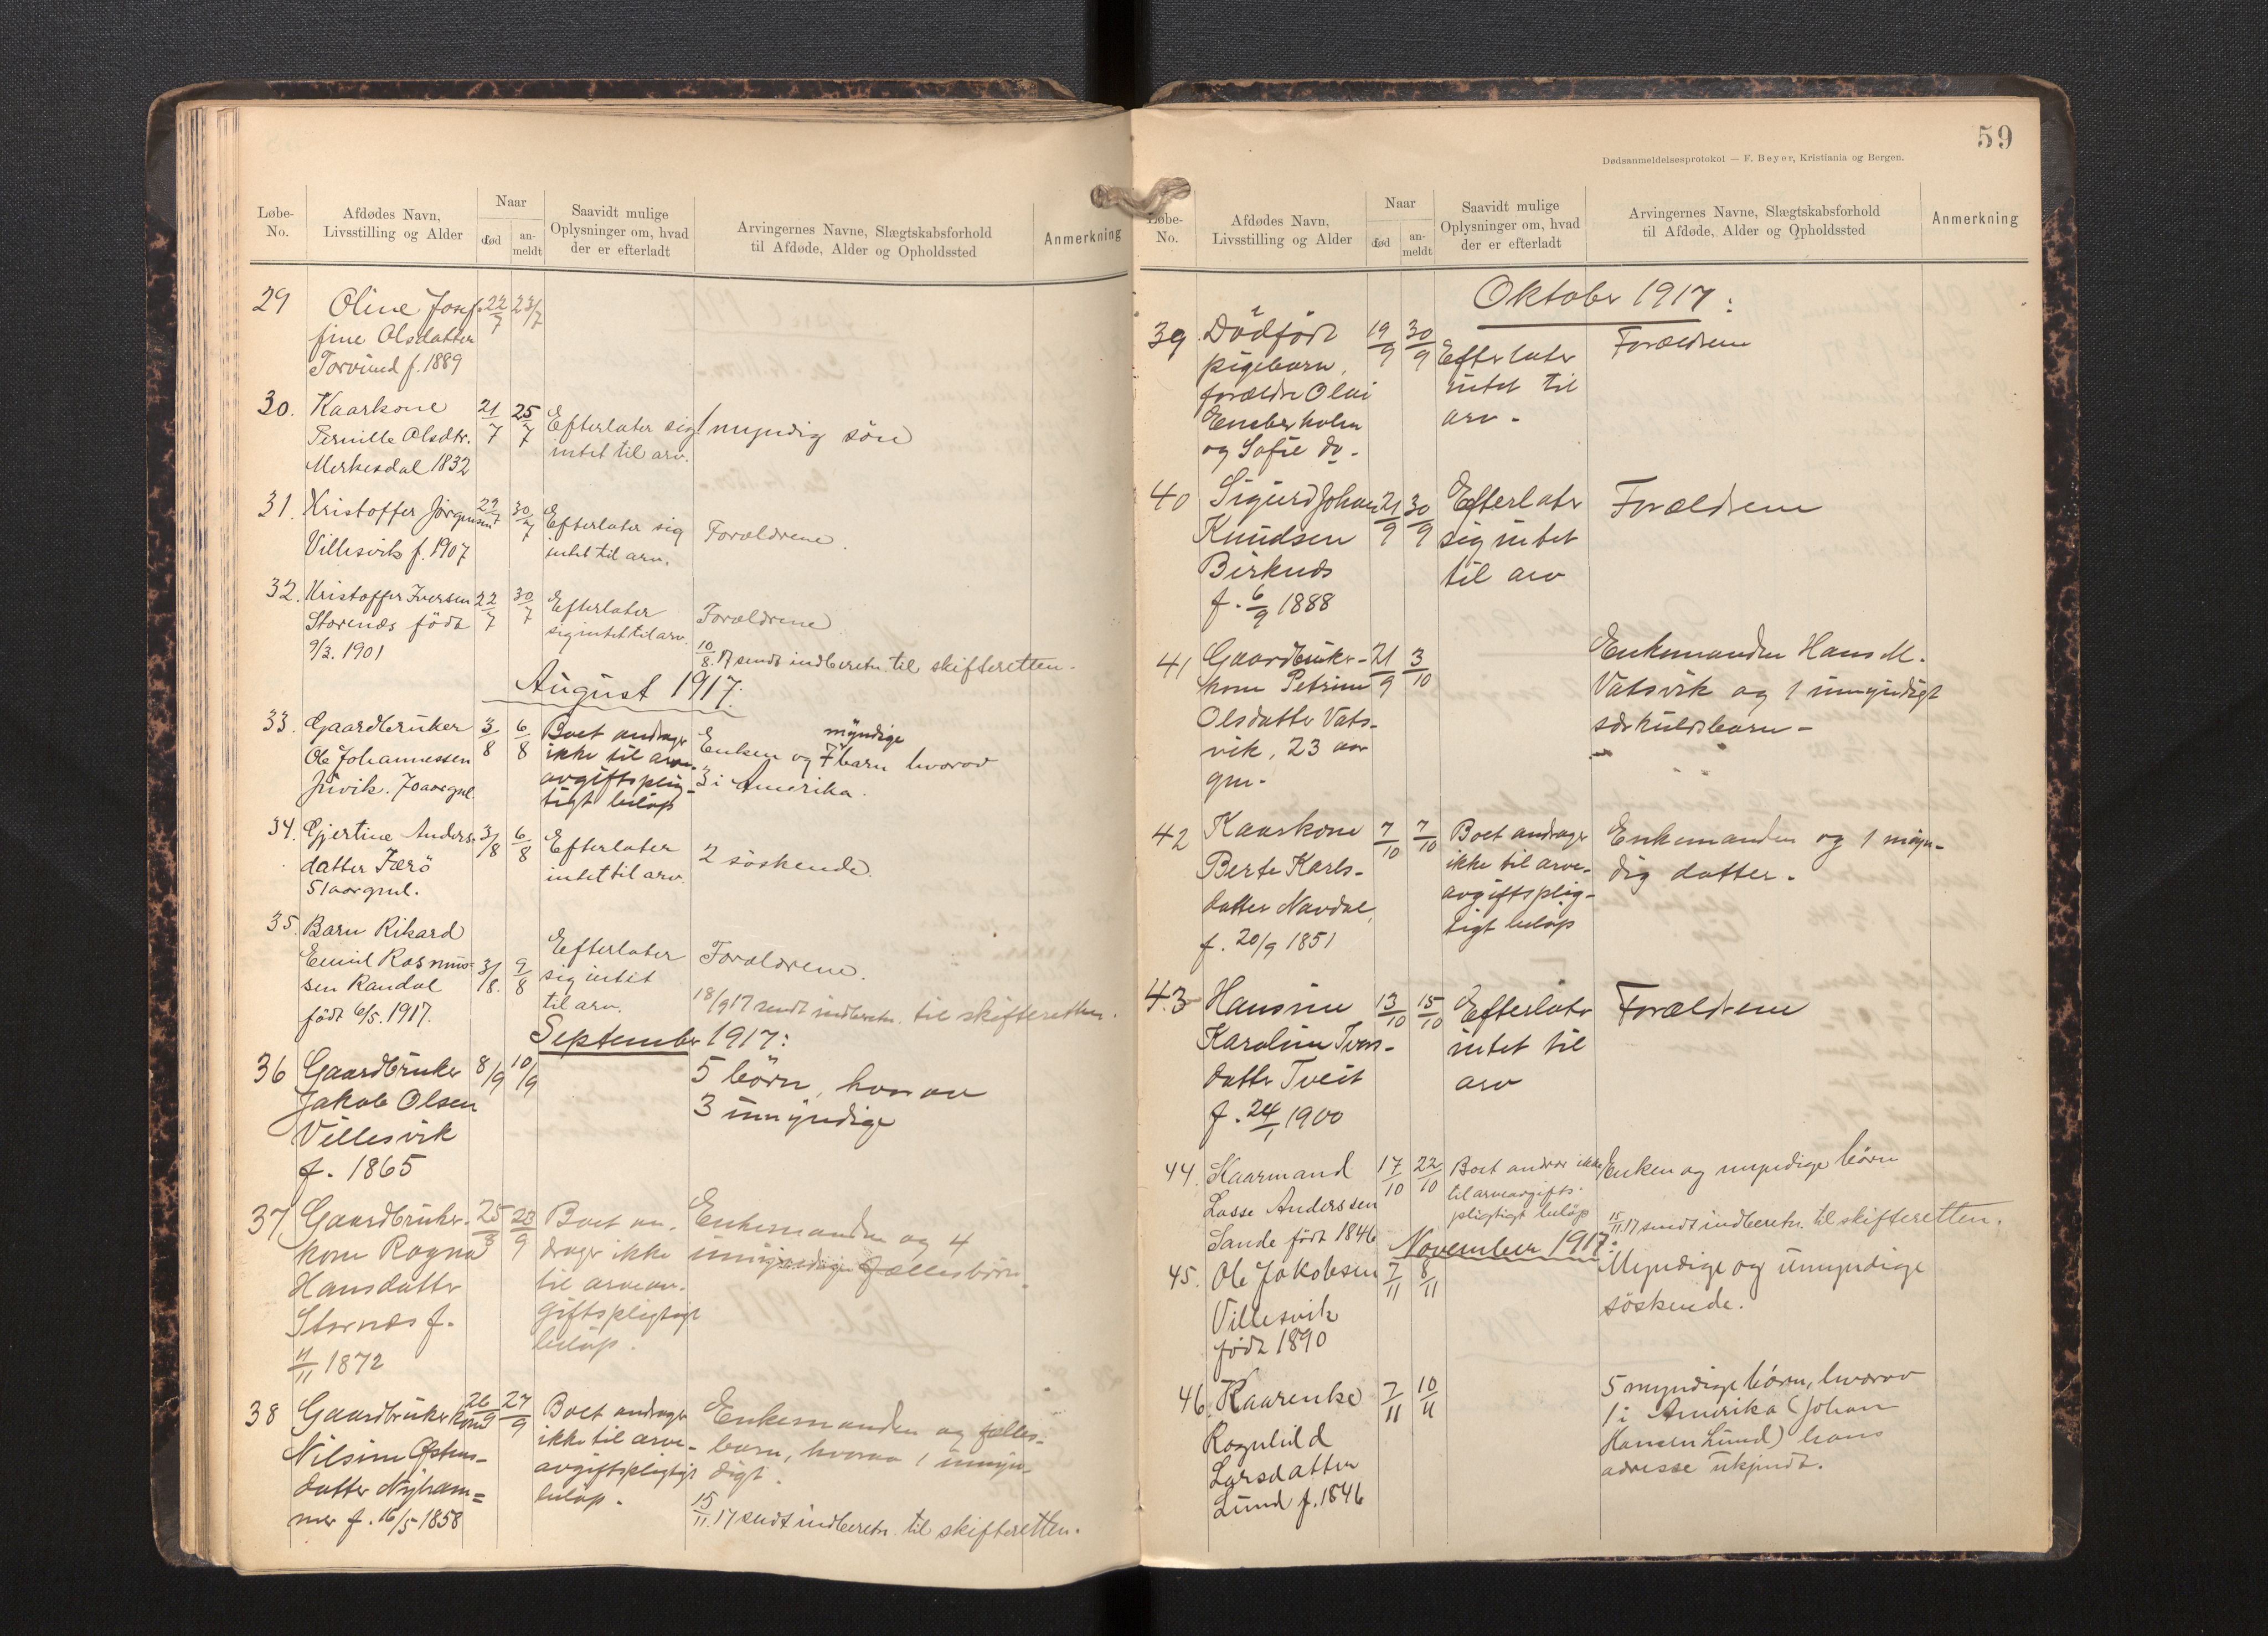 Løbe-No.
Afdødes Navn, Livsstilling og Alder
Naar
død
an-meldt
Saavidt mulige Oplysninger om, hvad der er efterladt
Arvingernes Navne, Slægtskabsforhold til Afdøde, Alder og Opholdssted
Anmerkning
29 Oline Josef- 22/7 23/7
fine Olsdatter
Torvund f. 1889
30. Kaarkone 21/7 25/7 Efterlater sig 1 myndig søn
Pernille Olsdtr. intet til arv.
Merkesdal 1832
31. Kristoffer Jørgensen 22/7 30/7 Efterlater sig Forældrene.
Villesvik f. 1907 intet til arv.
32. Kristoffer Iversen 22/7 30/7 Efterlater Forældrene
Storenæs født sig intet til arv.
9/3. 1901
10/8.17 sendt indberetn. til skifteretten.
August 1917:
33. Gaardbruker 3/8 6/8 Boet andrager Enken og 7 myndige barn hvorav
Ole Johannessen ikke til arve- 3 i Amerika.
Juvik. 70 aar gml. avgiftsplig-
tigt beløp
34. Gjertine Anders- 3/8 6/8 Efterlater 2 søskende.
datter Færö intet til arv.
51 aar gml.
35. Barn Rikard
Emil Rasmus- 3/8. 9/8 Efterlater Forældrene.
sen Randal sig intet
født 6/5. 1917. til arv.
18/9 17 sendt indberetn. til skifteretten.
September 1917:
36 Gaardbruker 8/9 10/9 5 børn, hvorav
Jakob Olsen 3 umyndige
Villesvik
f. 1865
37 Gaardbruker- 23/9 Boet an- Enkemanden og 4
kone Ragna drager ikke umyndige fællesbørn.
Hansdatter til arveav-
Stornæs f. giftspligtigt
4/11 1872 beløp.
38 Gaardbrukerkone 26/9 27/9 Boet andrager Enkemanden og fælles-
Nilsine ikke til arve- barn, hvorav 1 umyn-
datter Nyham- avgiftspligtigt digt.
mer f. 16/5 1858 beløp.
15/11.17 sendt indberetn. til skifteretten.
59
Dødsanmeldelsesprotokol — F. Beyer, Kristiania og Bergen.
Løbe-No.
Afdødes Navn, Livsstilling og Alder
Naar
død
an-meldt
Saavidt mulige Oplysninger om, hvad der er efterladt
Arvingernes Navne, Slægtskabsforhold til Afdøde, Alder og Opholdssted
Anmerkning
Oktober 1917:
39. Dødfødt 19/9 30/9 Efterlater Forældrene
pigebarn, intet til
forældre Olai arv.
Emberholm
og Sofie do.
40 Sigurd Johan 21/9 30/9 Efterlater Forældrene
Knudsen sig intet
Birknes til arv
f. 6/9 1888
41 Gaardbruker- 21/9 3/10 Enkemanden Hans M.
kone Petrine Vatsvik og 1 umyndigt
Olsdatter Vats- særkuldsbarn.
vik, 23 aar
gml.
42 Kaarkone 7/10 7/10 Boet andrager Enkemanden og 1 myn-
Berte Karls- ikke til arve- dig datter.
datter Navdal, avgiftsplig-
f. 20/9 1851 tigt beløp
43 Hansine 13/10 15/10 Efterlater Forældrene
Karoline Ivers- intet til
datter Tveit arv
f. 24/1 1900
44. Kaarmand 17/10 22/10 Boet andrar ikke Enken og myndige børn
Lasse Anderssen til arveavgifts-
Sande født 1846 pligtigt beløp
15/11.17 sendt indberetn. til skifteretten.
November 1917:
45. Ole Jakobsen 7/11 8/11 Myndige og umyndige
Villesvik søskende.
født 1890
46. Kaarenke 7/11 10/11 5 myndige børn, hvorav
Ragnhild 1 i Amerika (Johan
Larsdatter Hansen Lund) hans
Lund f. 1846 adresse ukjendt.